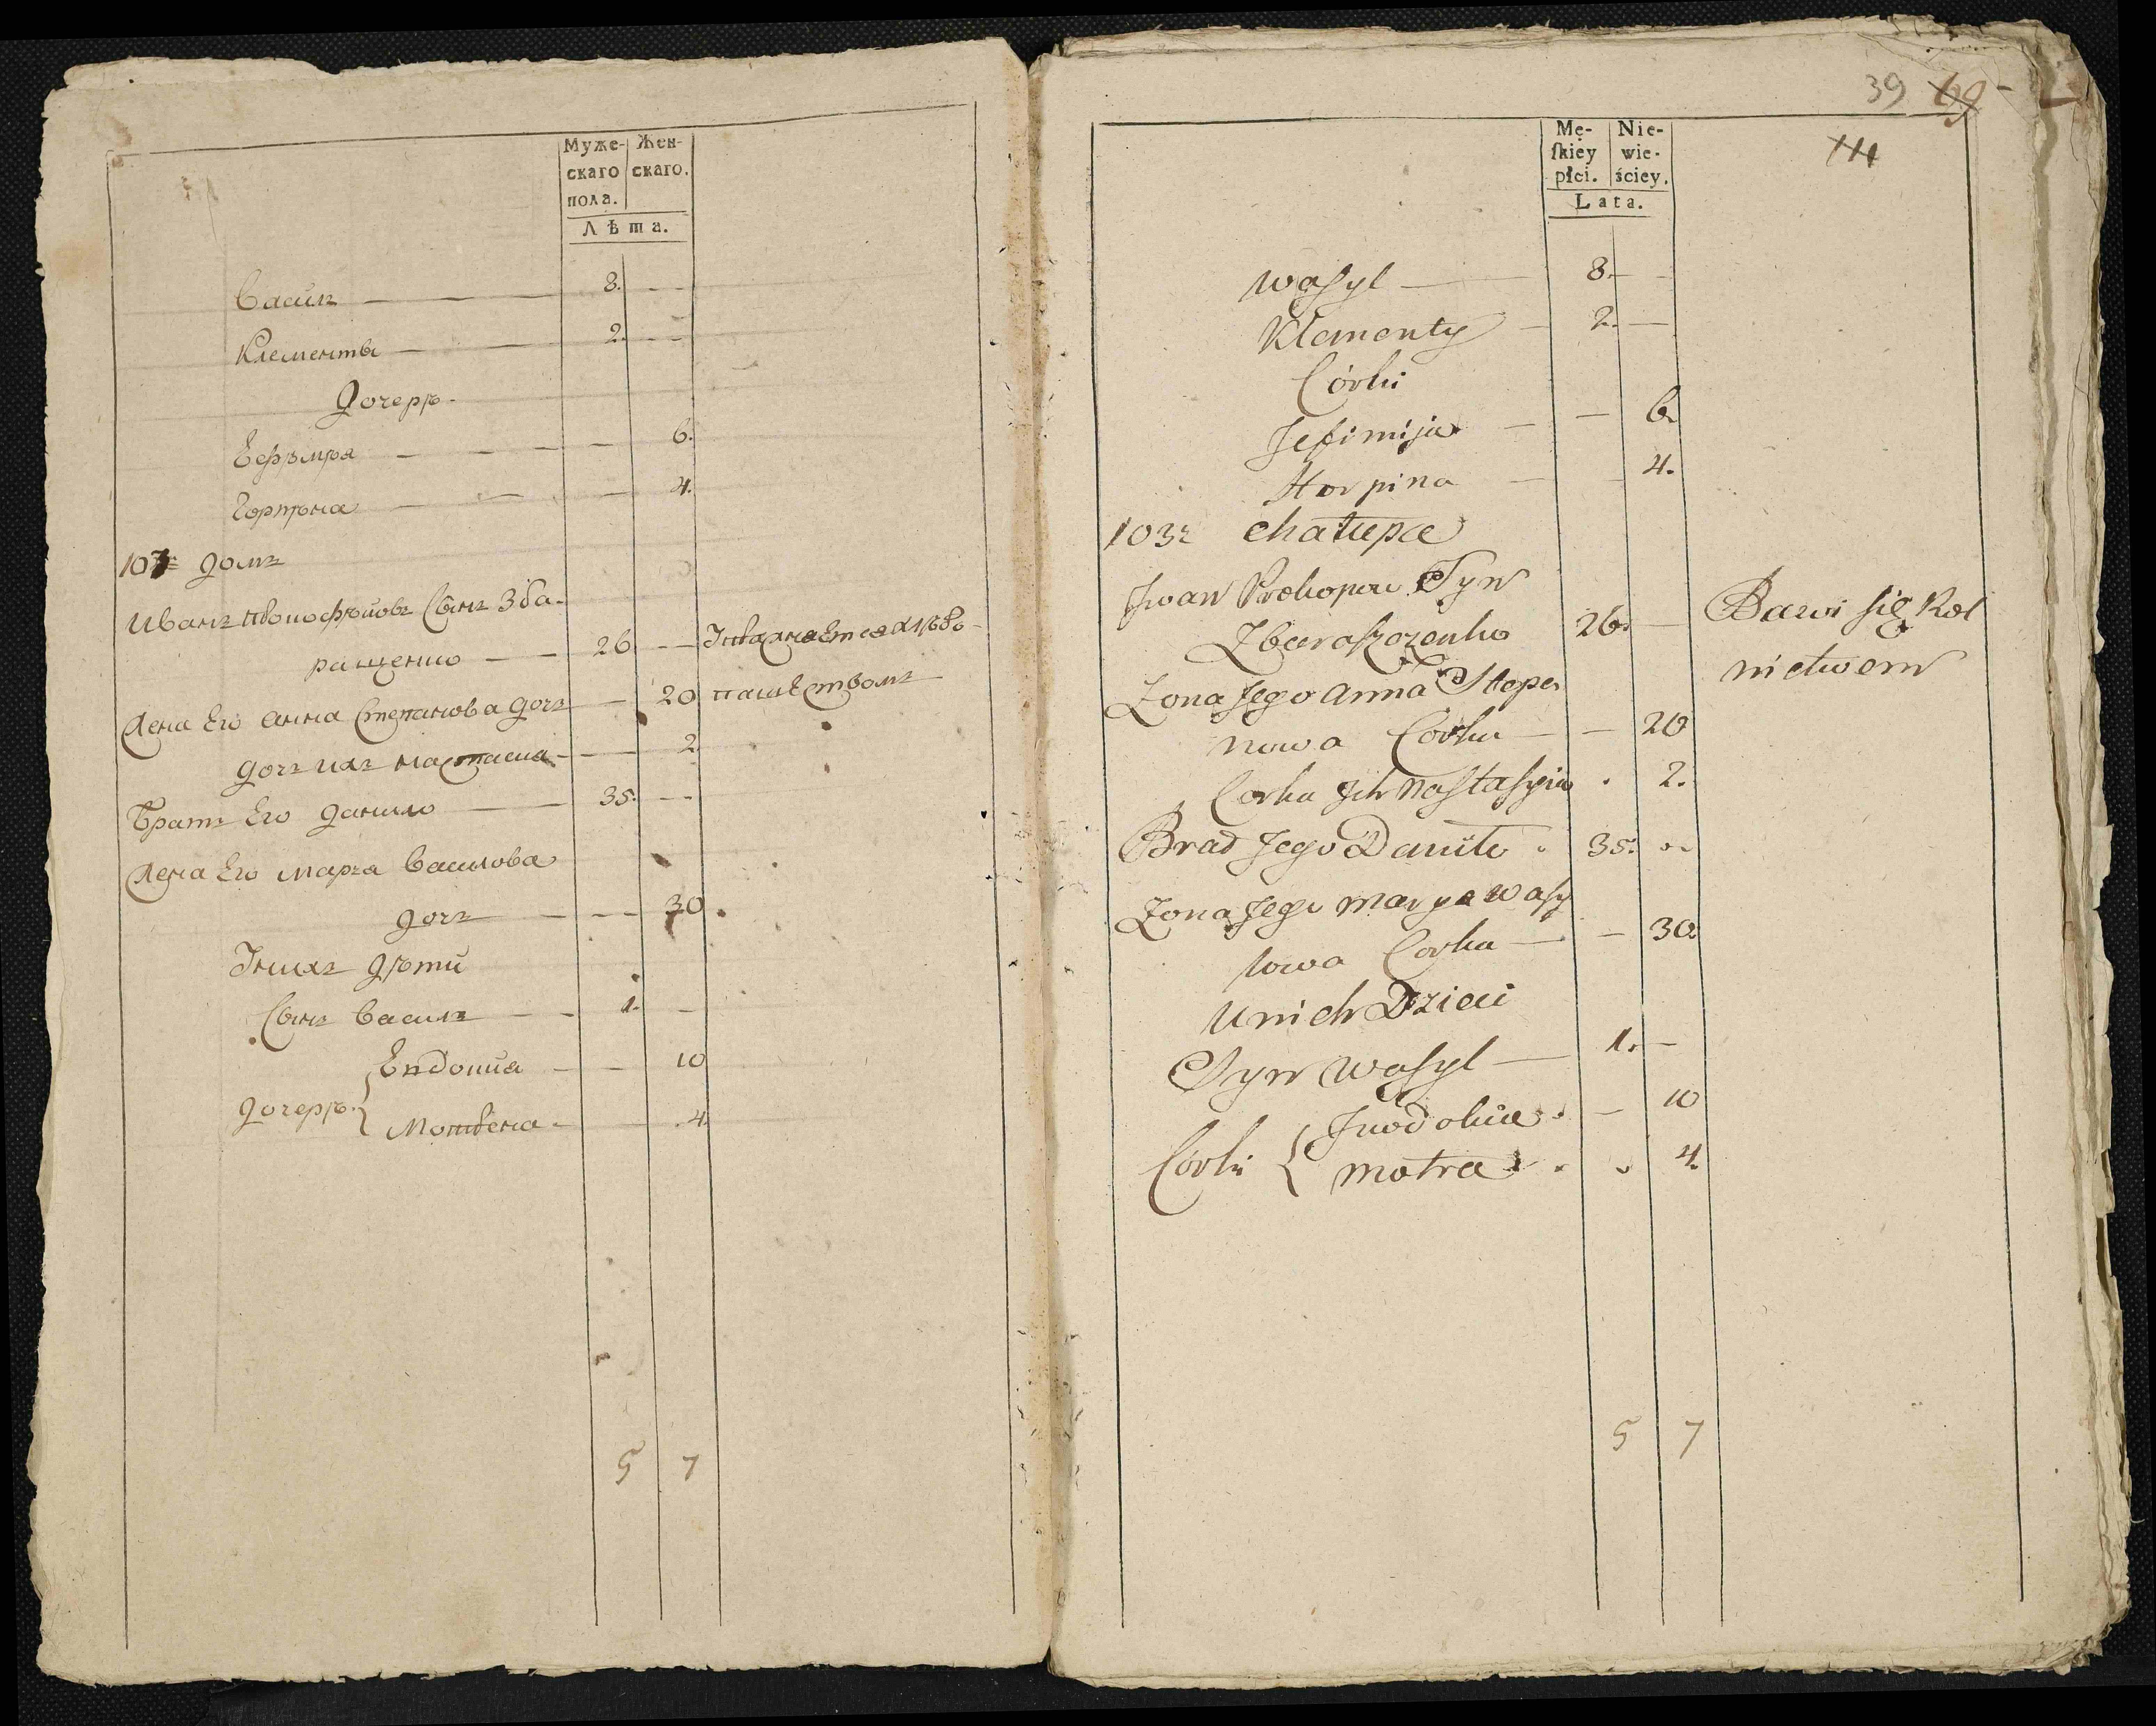 Муже-
скаго
пола.
Жен-
скаго.
Лѣта.
Василъ — — — 8. — —
Клементы — — 2. — —
Дочерѣ.
Еефѣмѣя — — — — 6.
Горпѣна — — — 4.
103: Домъ
Иванъ Сынъ Зба-
ращенко — — 26. —
Жена Его Анна Степанова дочь — 20
дочь ихъ Настасиа — — 2.
Братъ Его Данило — — 35. —
Жена Его Маря Василова
дочь — — — 30.
Унихъ Дѣти
Сынъ Василъ — — 1. —
Дочерѣ. { Евдокиа — — 10
Мотвена — — 4.
5 7
39 69
Mę-
ſkiey
płci.
Nie-
wie-
ściey.
Lata.
Waſyl — 8. — —
Klementy — 2. —
Córki
Jefimija — — 6.
Horpina — — 4.
103: Chałupa
Jwan Prokopow Syn
Zbaraſzczenko 26. — Bawi się Rol
nictwem
Zona Jego Anna Stepa
nowa Corka — — 20
Corka Jch Naſtaſyia . 2.
Brad Jego Daniło . 35. ..
Zona Jego Marya Waſy
lowa Corka — — 30.
U nich Dzieci
Syn Waſyl — 1. —
Córki { Jwdokia . — 10
Motra . . . 4.
5 7